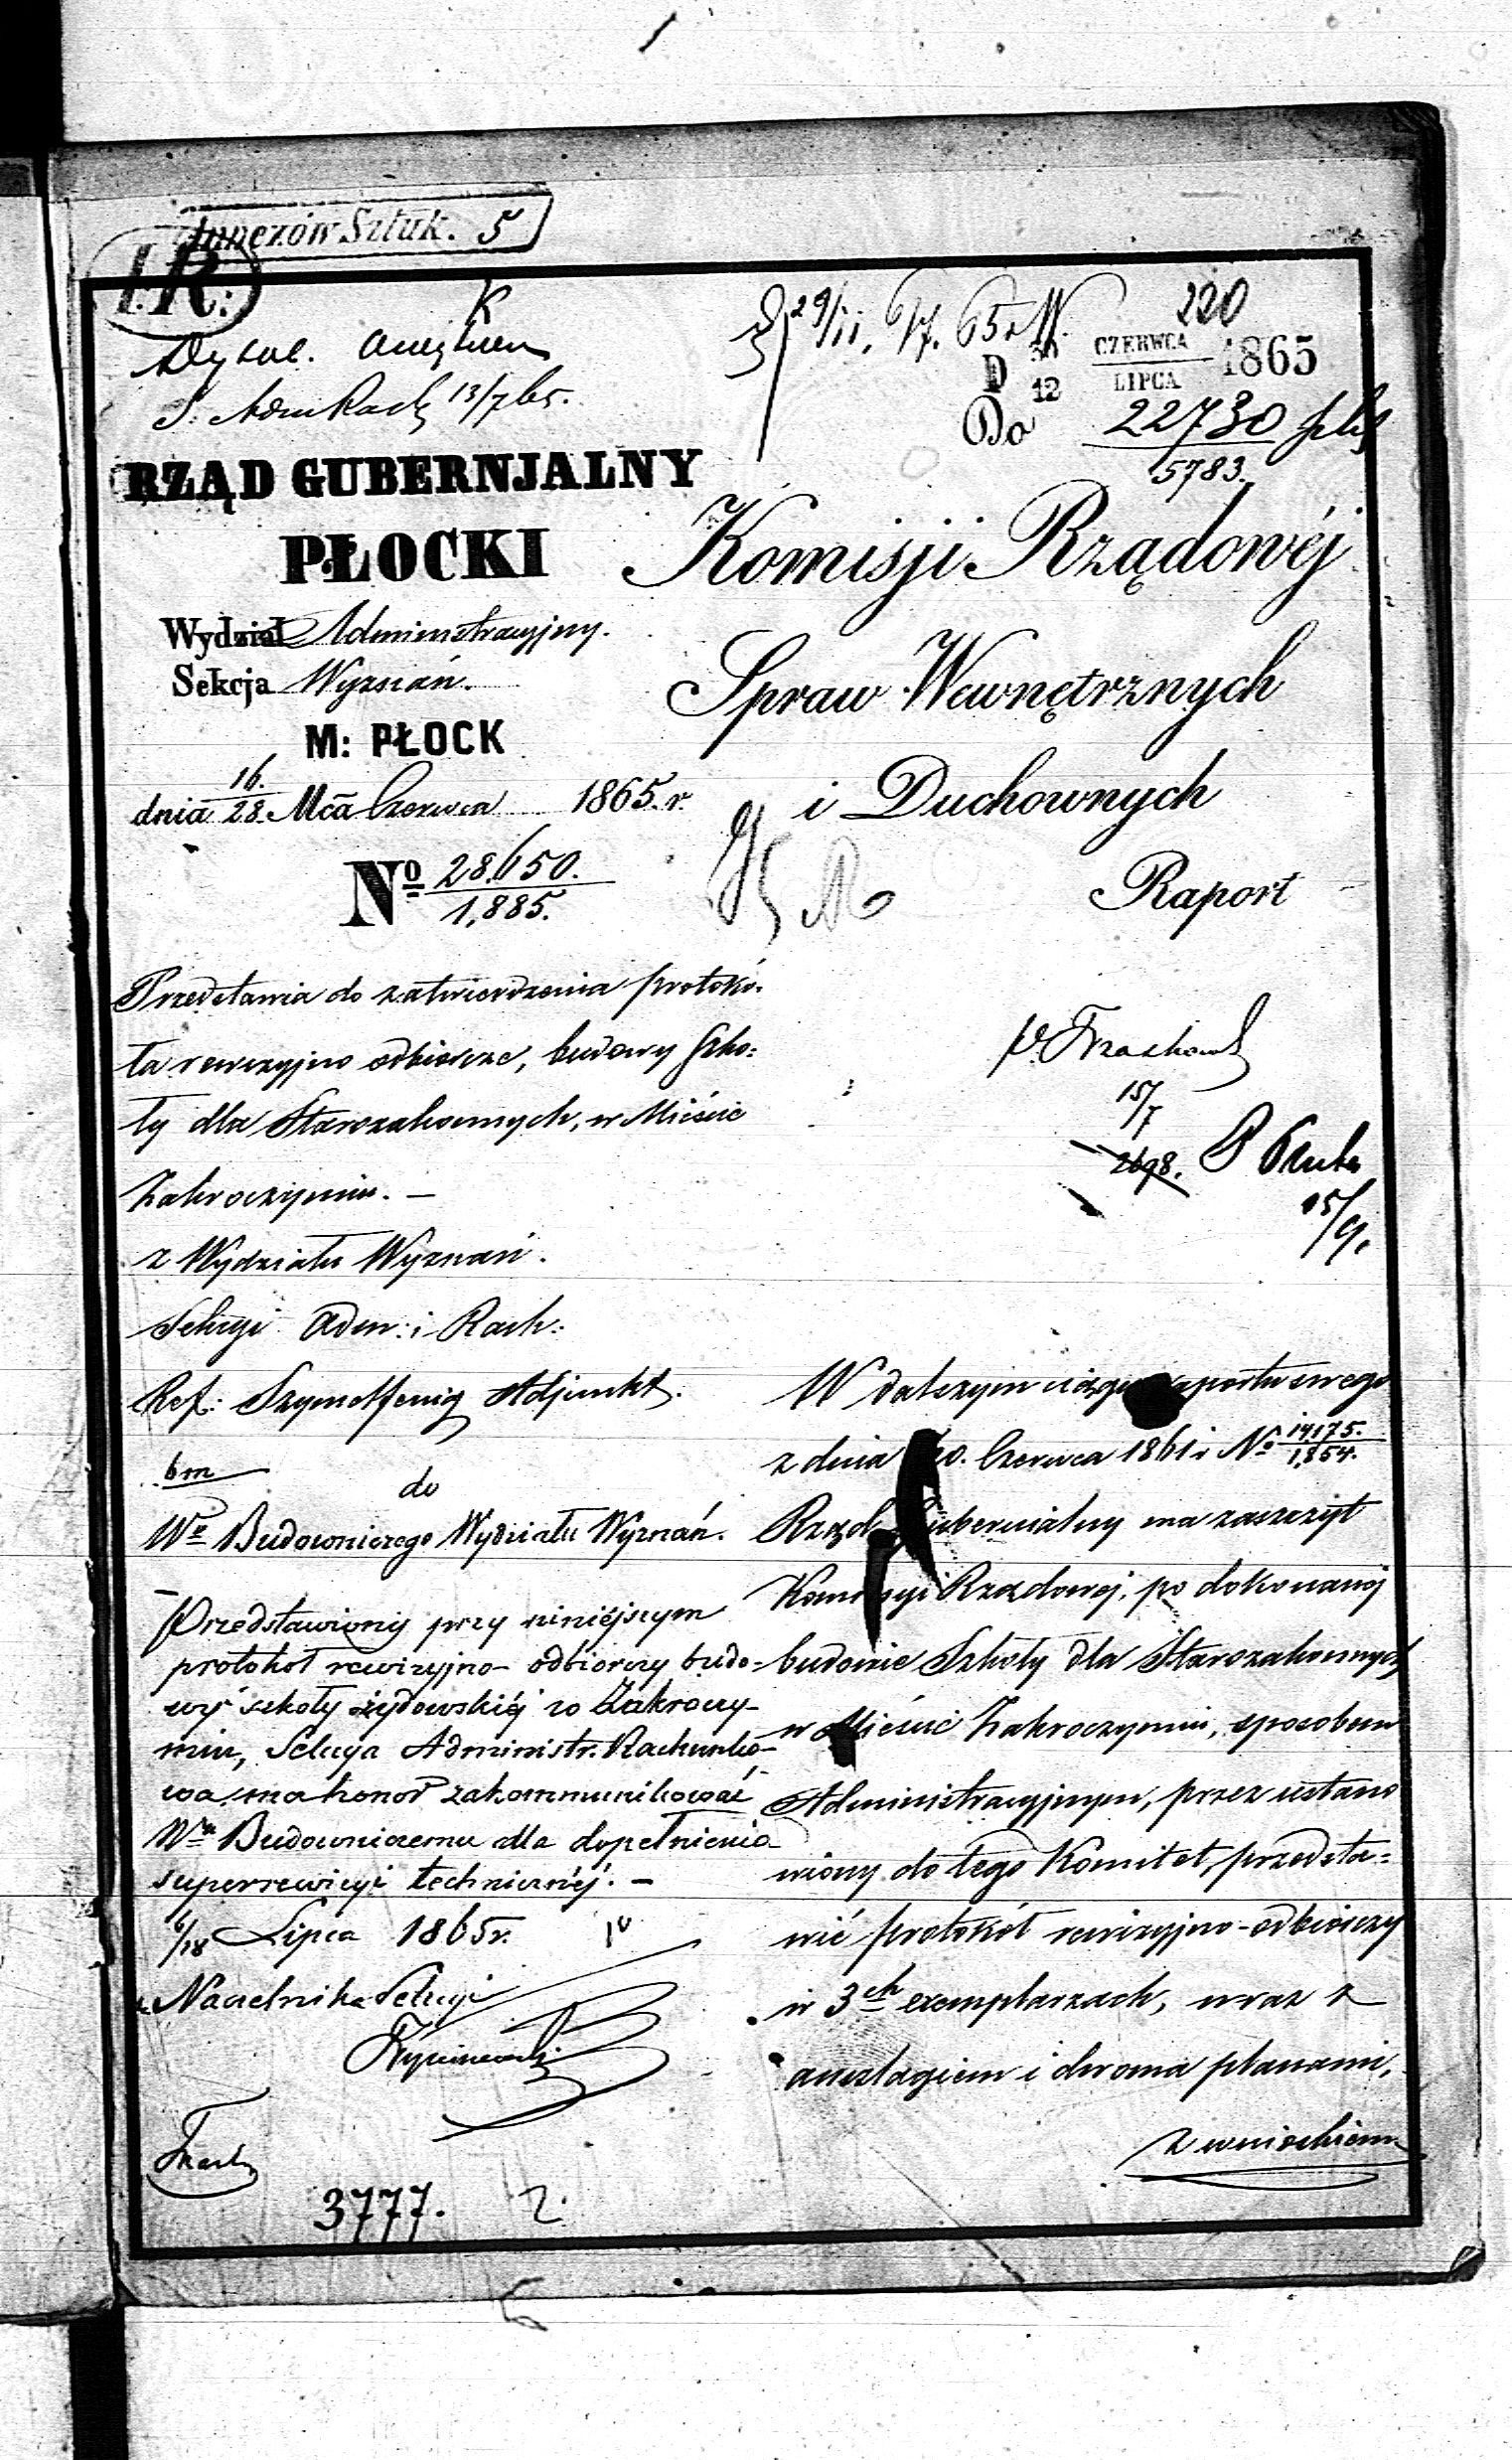 Annexów Sztuk. 5
I.R:
220
D 30/12 CZERWCA/LIPCA 1865
13/7 65.
Do 22730/5783.
RZĄD GUBERNJALNY
PŁOCKI
Wydział Administracyjny.
Sekcja Wyznań.
M: PŁOCK
dnia 16./28. Mca Czerwca 1865. r.
No 28.650./1,885.
Komisji Rządowéj
Spraw Wewnętrznych
i Duchownych
Raport
Przedstawia do zatwierdzenia protokó-
ła rewizyjno odbiorcze, budowy Szko:
ły dla Starozakonnych, w Mieście
Zakroczymiu. —
z Wydziału Wyznań.
Sekcyi Adm: i Rach:
Ref: Adjunkt.
do
Wo Budowniczego Wydziału Wyznań.
Przedstawiony przy niniejszym
protokół rewizyjno- odbiorczy budo-
wy szkoły żydowskiéj w Zakroczy-
miu, Sekcya Administr. Rachunko-
wa ma honor zakommunikować
Wmu Budowniczemu dla dopełnienia
superrewizyi technicznéj. —
6/18 Lipca 1865 r.
Naczelnik Sekcyi
3777. 2.
15/7
2698.
15/9.
W dalszym ciągu raportu swego
z dnia Czerwca 1861 r No 14,175./1,854.
Rząd Gubernialny ma zaszczyt
Komissyi Rządowej, po dokonanéj
budowie Szkoły dla Starozakonnych
w Mieście Zakroczymiu, sposobem
Administracyjnym, przez ustano
wiony do tego Komitet, przedsta=
wić protokół rewizyjno-odbiorczy
w 3ch exemplarzach, wraz z
anszlagiem i dwoma planami,
z wnioskiem